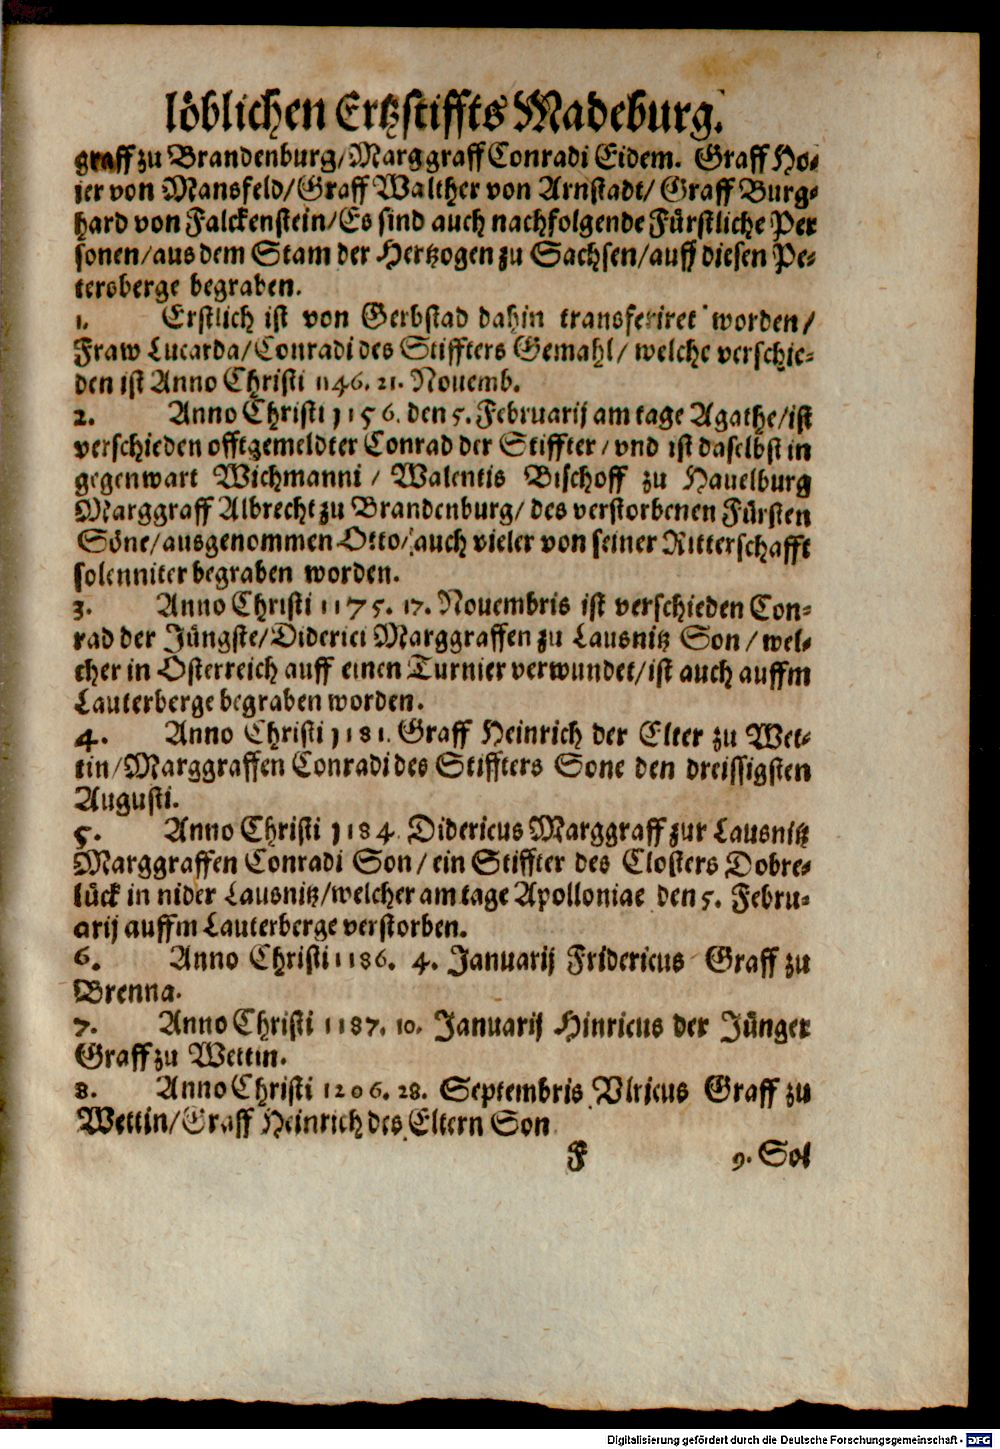 löblichen Ertzstiffts Madeburg.
graff zu Brandenburg/Marggraff Conradi Eidem. Graff Ho-
ier von Mansfeld/Graff Walther von Arnstadt/ Graff Burg-
hard von Falckenstein/Es sind auch nachfolgende Fürstliche Per
sonen/aus dem Stam der Hertzogen zu Sachsen/auff diesen Pe-
tersberge begraben.
1. Erstlich ist von Gerbstad dahin transferiret worden/
Fraw Lucarda/Conradi des Stiffters Gemahl/ welche verschie-
den ist Anno Christi 1146. 21. Nouemb.
2. Anno Christi 1156. den 5. Februarij am tage Agathe/ist
verschieden offtgemeldter Conrad der Stiffter/ vnd ist daselbst in
gegenwart Wichmanni/ Walentis Bischoff zu Hauelburg
Marggraff Albrecht zu Brandenburg/ des verstorbenen Fürsten
Söne/ausgenommen Otto/auch vieler von seiner Ritterschafft
solenniter begraben worden.
3. Anno Christi 1175. 17. Nouembris ist verschieden Con-
rad der Jüngste/Diderici Marggraffen zu Lausnitz Son/ wel-
cher in Osterreich auff einen Turnier verwundet/ist auch auffm
Lauterberge begraben worden.
4. Anno Christi 1181. Graff Heinrich der Elter zu Wet-
tin/Marggraffen Conradi des Stiffters Sone den dreissigsten
Augusti.
5. Anno Christi 1184. Didericus Marggraff zur Lausnitz
Marggraffen Conradi Son/ ein Stiffter des Closters Dobre-
lück in nider Lausnitz/welcher am tage Apolloniae den 5. Febru-
arij auffm Lauterberge verstorben.
6. Anno Christi 1186. 4. Januarij Fridericus Graff zu
Brenna.
7. Anno Christi 1187. 10. Januarij Hinricus der Jünger
Graff zu Wettin.
8. Anno Christi 1206. 28. Septembris Vlricus Graff zu
Wettin/Graff Heinrich des Eltern Son
F 9. Sol
Digitalisierung gefördert durch die Deutsche Forschungsgemeinschaft - DFG